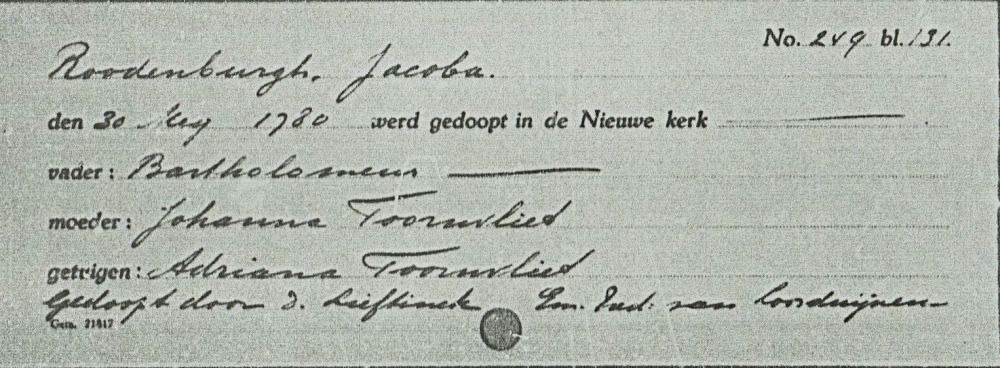 No. 249 bl. 131.
Roodenburgh, Jacoba.
den 30 Mey 1780 werd gedoopt in de Nieuwe kerk
vader: Bartholomeus
moeder: Johanna Toornvliet
getuigen: Adriana Toornvliet
Gedoopt door D. Lieftinck Em. Pred. van Noordwijk
Gem. 21817